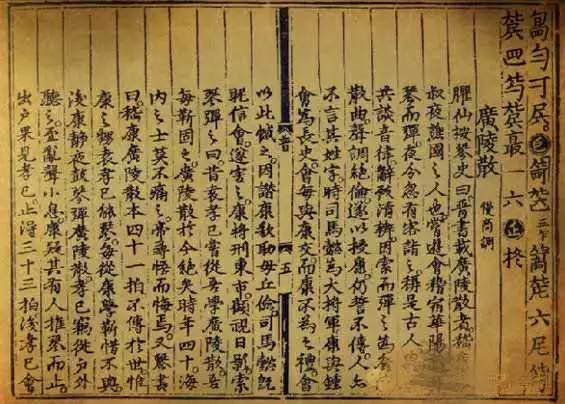 廣陵散 慢商調
臞仙按琴史曰晉書載廣陵散者嵇
叔夜譙國之人也嘗遊會稽宿華陽
琴而彈夜分忽有客詣之稱是古人
共談音律辭致清辯因索而彈之為
散曲聲調絕倫遂以授康仍誓不傳人亦
不言其姓字時司馬懿為大將軍康與鍾
會為長史會每與康交而康不為之禮會
五
以此憾之因譖康欲助毋丘儉司馬懿既
昵信會遂害之康將刑東市顧視日影索
琴彈之曰昔袁孝已嘗從吾學廣陵散吾
每靳固之廣陵散於今絕矣時年四十海
內之士莫不痛之帝尋悟而悔焉又琴書
曰嵇康廣陵散本四十一拍不傳於世惟
康之甥袁孝已能琴每從康學靳惜不與
後康靜夜鼓琴彈廣陵散孝已竊從戶外
聽之至亂聲小息康疑其有人推琴而止
出戶果見孝已止得三十三拍後孝已會